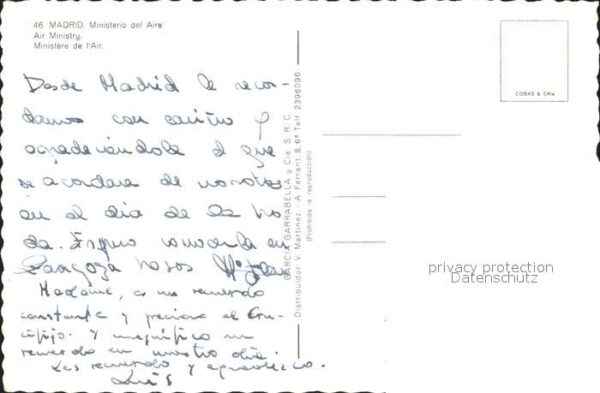 46. MADRID. Ministerio del Aire
Air Ministry.
Ministère de l'Air.
Desde Madrid le recor-
damos con cariño y
agradeciéndole el que
se acordara de nosotros
en el dia de la bo
da. Espero conocerla en
Zaragoza besos Mª
Madame, es un recuerdo
constante y precioso el Cru-
cifijo. y magnífico un
recuerdo en nuestro dia.
Les recuerdo y agradezco.
Luis
GARCIA GARRABELLA y Cia. S. R. C.
Distribuidor: V. Martinez. - A. Ferrant 8, 6ª Telf. 2396096
(Prohibida la reproducción)
COBAS & Cía
privacy protection
Datenschutz